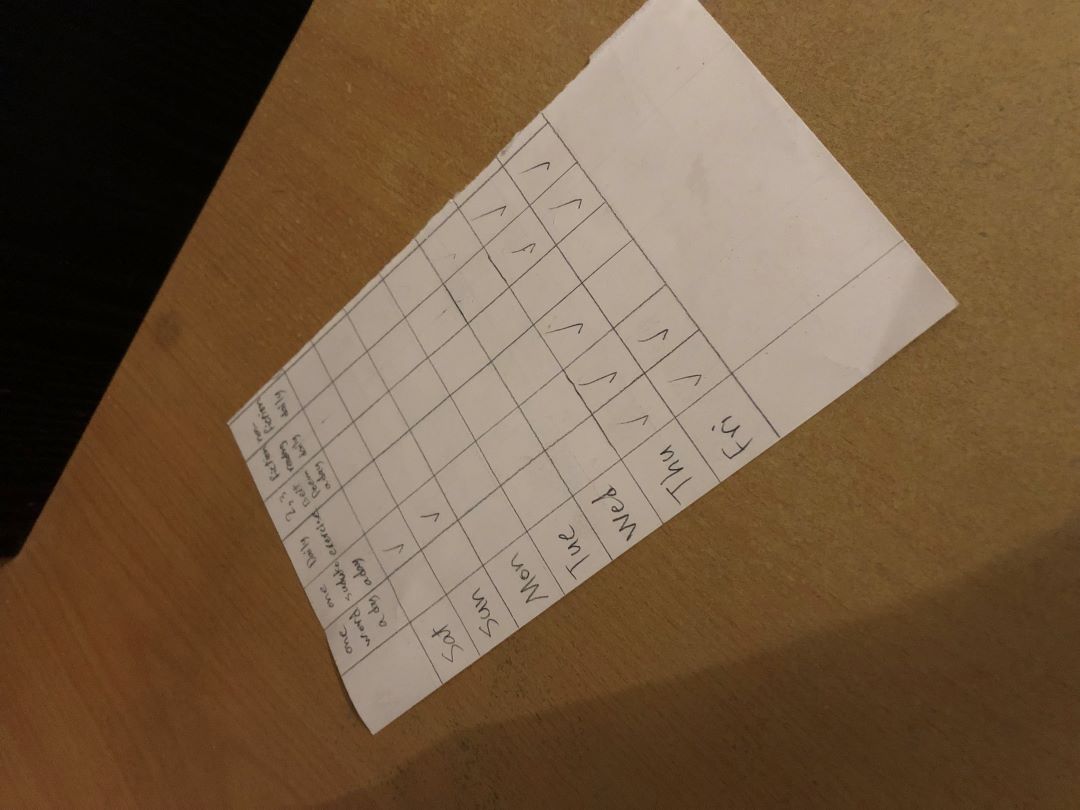 one
word
a day
one
suduko
a day
Daily
exercise
2,3
Beit
Poem
a day
fiction
reading
daily
non
fiction
daily
Sat ✓
Sun ✓
Mon
Tue
Wed
Thu ✓ ✓ ✓ ✓ ✓
Fri ✓ ✓ ✓ ✓